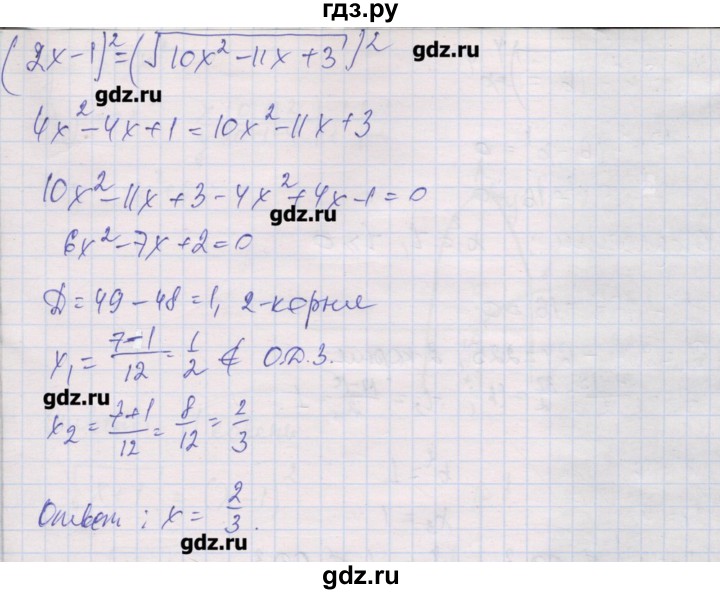 гдз.ру
(2x-1)²=(√10x²-11x+3)²
gdz.ru
gdz.ru
4x²-4x+1=10x²-11x+3
10x²-11x+3-4x²+4x-1=0
gdz.ru
6x²-7x+2=0
Д=49-48=1, 2-корня
x₁=7-1/12=1/2 ∉ О.Д.З.
gdz.ru
x₂=7+1/12=8/12=2/3
Ответ: x=2/3.
gdz.ru
gdz.ru